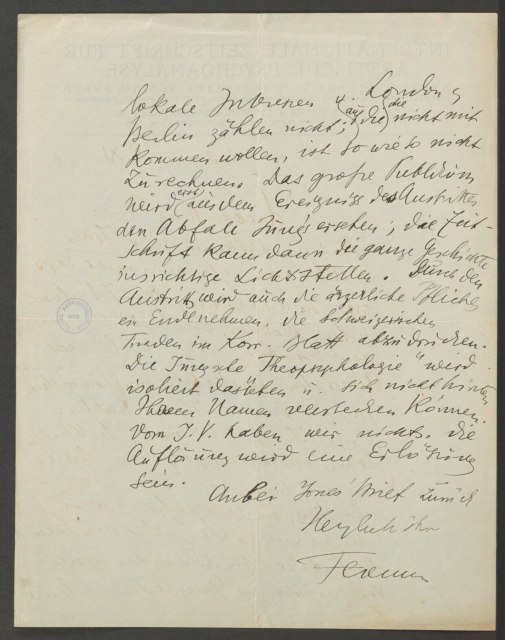 lokale Interessen u. London
Berlin zählen nicht; (auf die) die nicht mit
kommen wollen, ist so wie so nicht
zu rechnen. Das große Publikum
wird erst aus dem Ereigniss des Austrittes
den Abfall Jungs ersehen; die Zeit-
schrift kann dann die ganze Geschichte
ins richtige Licht stellen. Durch den
Austritt wird auch die ärgerliche Pflicht
ein Ende nehmen, die schweizerischen
im Korr. blatt abzudrucken.
Die Jungsche Theopsychologie" wird
isoliert dastehen u. sich nicht hinter
Ihrem Namen verstecken können.
Vom I. V. haben wir nichts. Die
Auflösung wird eine Erlösung
sein.
Anbei Jones' Brief zurück
Herzlich Ihr
Ferenczi